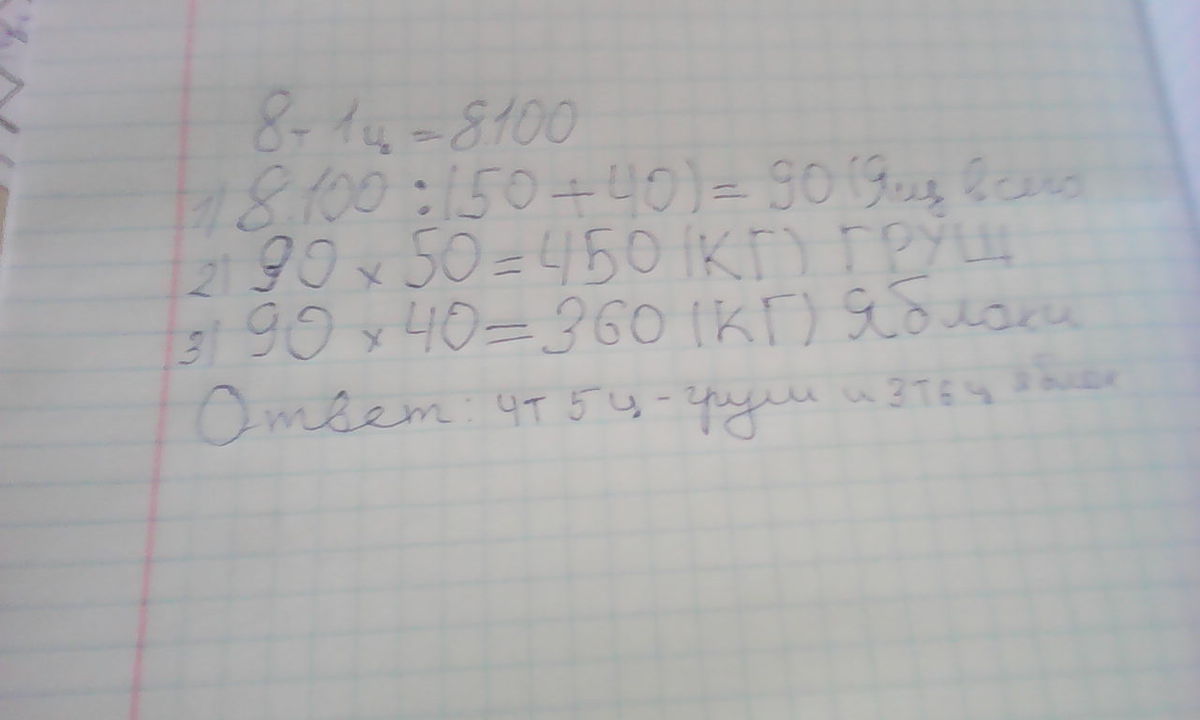 8т 1ц = 8100
1) 8.100 : (50 + 40) = 90 (Ящ всего
2) 90 × 50 = 450 (КГ) ГРУЩ
3) 90 × 40 = 360 (КГ) Яблоки
Ответ: 4т 5ц - груш и 3т6ц яблок